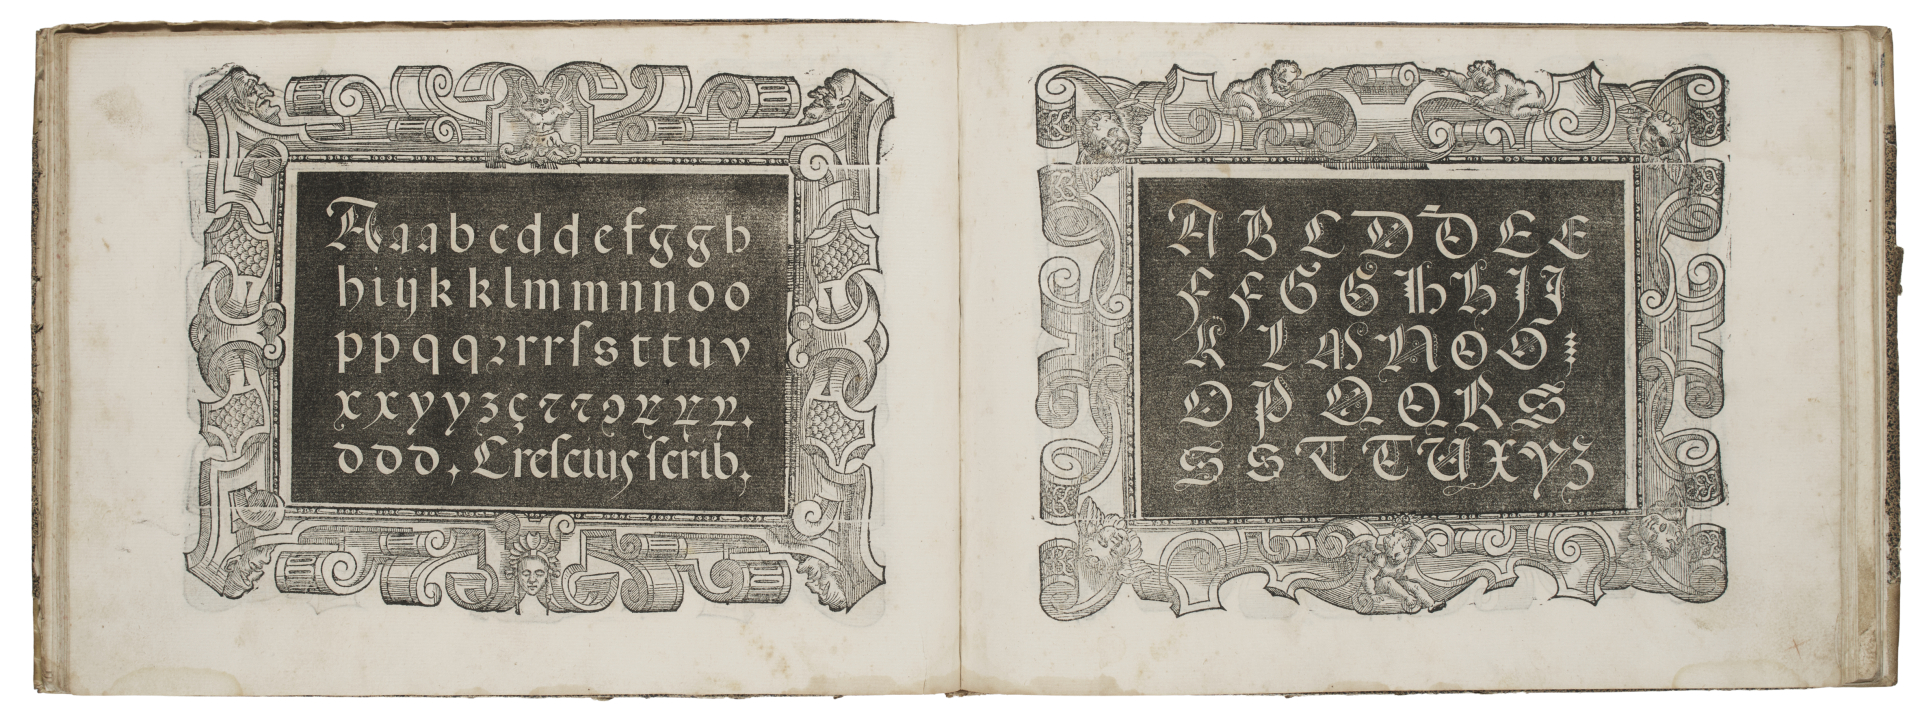 A a a a b c d d e f g g h
h i ij k k l m m n n o o
p p q q ꝛ r r ſ s t t u v
x x y y z ç
d d d, Creſcius ſcrib,
A B C D D E E
F F G G H H I J
K L M N O O
O P Q Q R S
S S T T U X Y Z